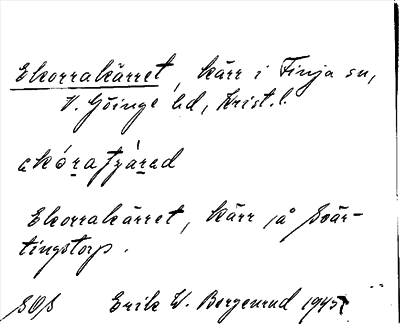 Ekorrakärret, kärr i Finja sn,
V. Göinge hd, Krist.l.
Ekorrakärret, kärr på Svär-
tingstorp.
Erik W. Bergenrud 1945